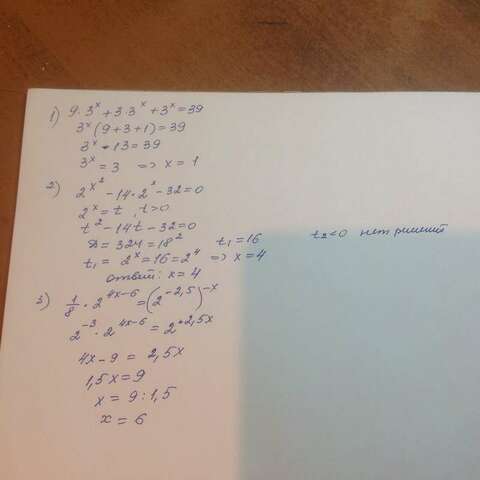 1) 9·3^x + 3·3^x + 3^x = 39
3^x (9+3+1) = 39
3^x · 13 = 39
3^x = 3 => x = 1
2) 2^x^2 - 14·2^x - 32 = 0
2^x = t, t>0
t^2 - 14t - 32 = 0
D = 324 = 18^2 t₁ = 16 t₂<0 нет решений
t₁ = 2^x = 16 = 2^4 => x = 4
ответ: x = 4
3) 1/8 · 2^4x-6 = (2^-2,5)^-x
2^-3 · 2^4x-6 = 2^2,5x
4x - 9 = 2,5x
1,5x = 9
x = 9 : 1,5
x = 6